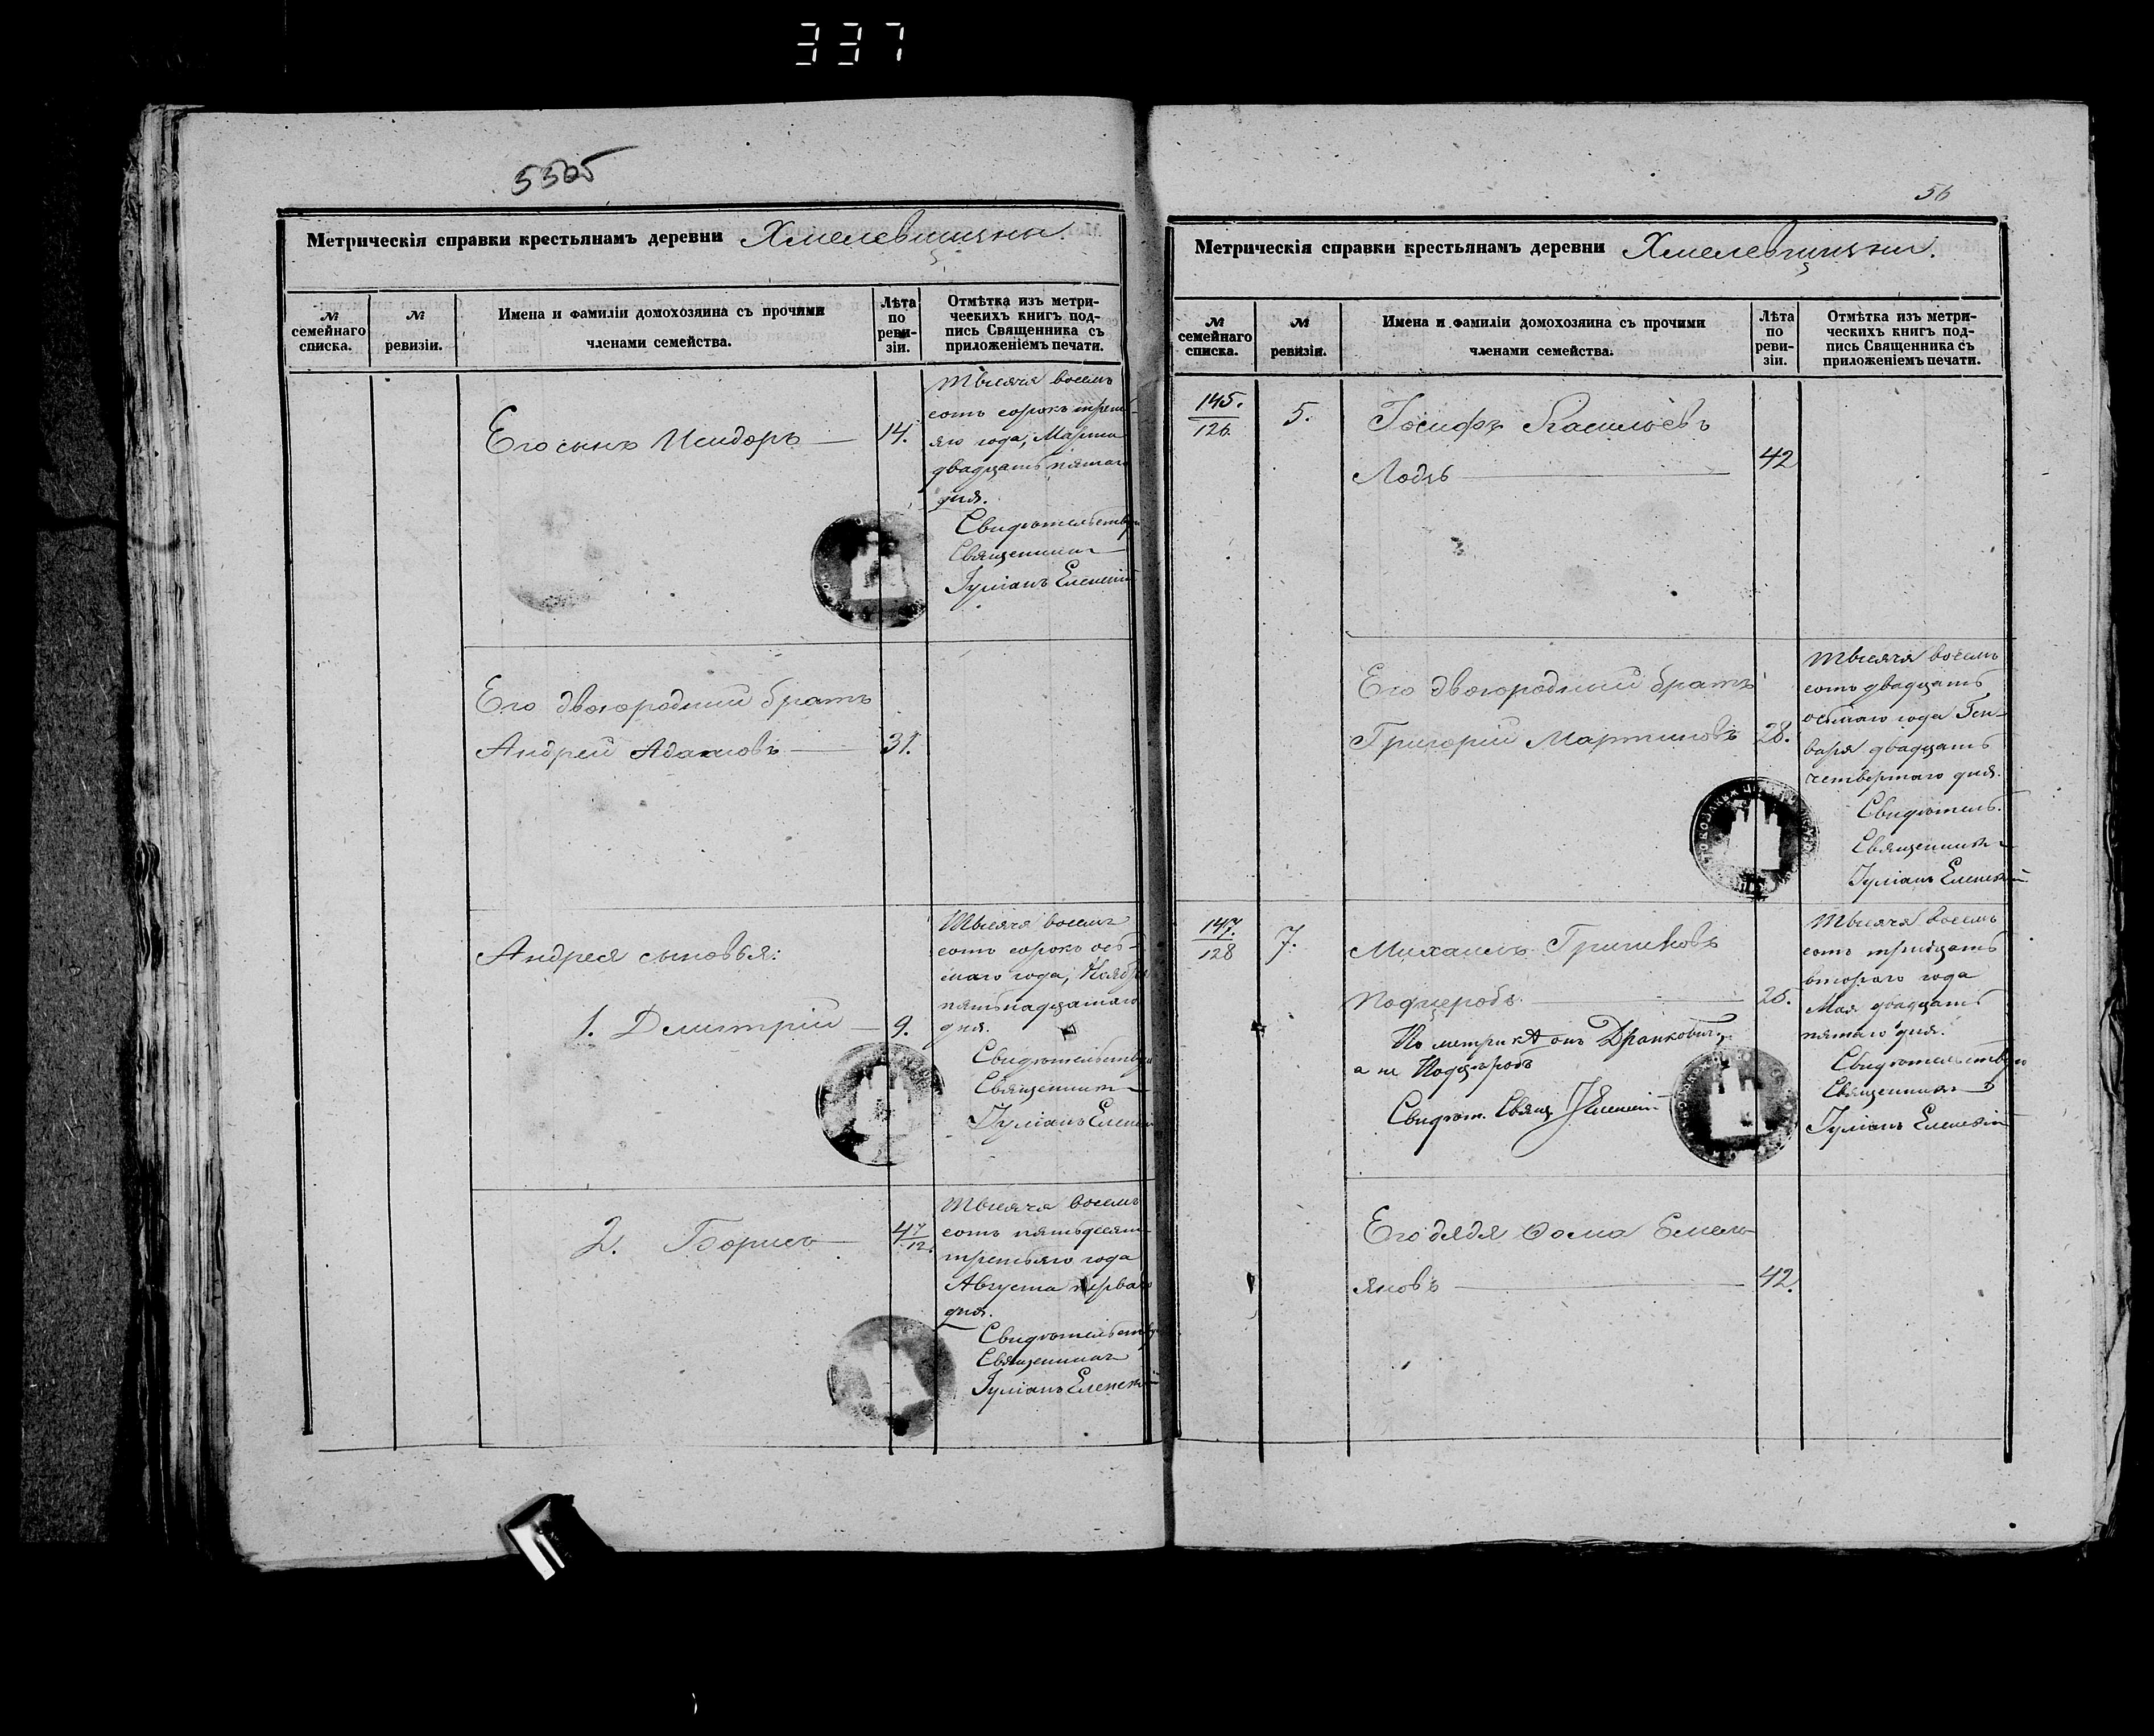 337
Метрическія справки крестьянамъ деревни Хмелевщизны.
№ семейнаго списка.
№ ревизіи.
Имена и фамиліи домохозяина съ прочими
членами семейства.
Лѣта по реви-
зіи.
Отмѣтка изъ метри-
ческихъ книгъ под-
пись Священника съ
приложеніемъ печати.
Его сынъ Исидоръ — 14.
Тысяча восемь
сотъ сорокъ треть-
яго года, Марта
двадцать пятаго
дня.
Свидѣтельствую
Священникъ
Іуліанъ Еленскій
Его двоюродный братъ
Андрей Адамовъ — 31.
Андрея сыновья:
1. Дмитрій — 9.
Тысяча восемь
сотъ сорокъ ось-
маго года, Ноября
пятьнадцатаго
дня.
Свидѣтельствую
Священникъ
Іуліанъ Еленскій
2. Борисъ — 4 7/12.
Тысяча восемь
сотъ пятьдесятъ
третьяго года
Августа перваго
дня.
Свидѣтельствую
Священникъ
Іуліанъ Еленскій
56
Метрическія справки крестьянамъ деревни Хмелевщизны.
№ семейнаго списка.
№ ревизіи.
Имена и фамиліи домохозяина съ прочими
членами семейства.
Лѣта по реви-
зіи.
Отмѣтка изъ метри-
ческихъ книгъ под-
пись Священника съ
приложеніемъ печати.
145./126. 5. Іосифъ Васильевъ
Лодзь — 42
Его двоюродный братъ
Григорій Мартиновъ 28.
Тысяча восемь
сотъ двадцать
осьмаго года Ген-
варя двадцать
четвертаго дня.
Свидѣтель.
Священникъ
Іуліанъ Еленскій
147./128 7. Михаилъ Григиковъ
Подцеробъ — 25.
По метрикѣ онъ Дранковичъ,
а не Подцеробъ
Свидѣт. Свящ. І Еленскій
Тысяча восемь
сотъ тридцать
втораго года
Мая двадцать
пятаго дня.
Свидѣтельствую
Священникъ
Іуліанъ Еленскій
Его дядя Ѳома Емель-
яновъ — 42.